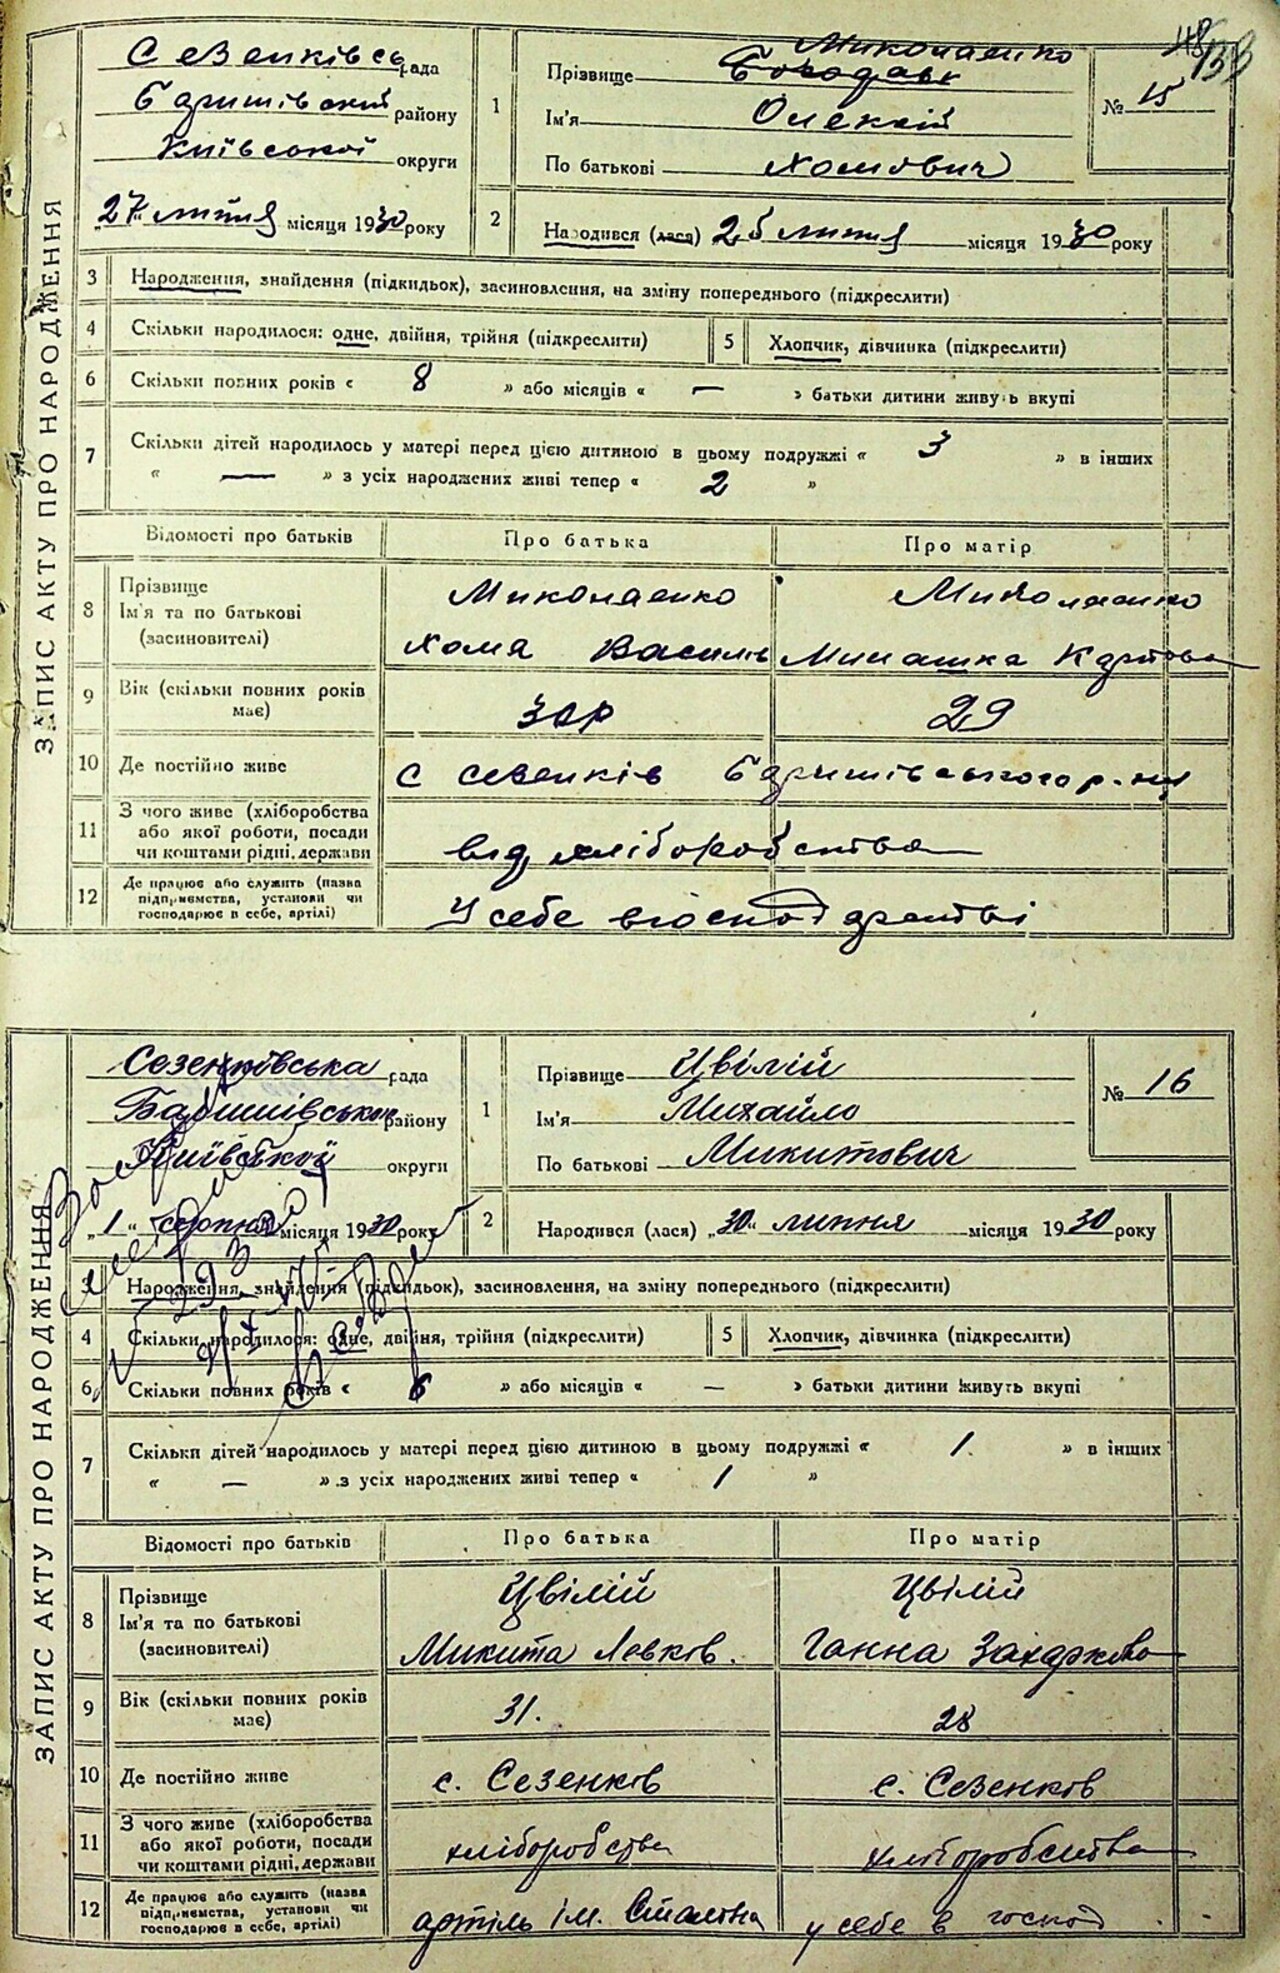 ЗАПИС АКТУ ПРО НАРОДЖЕННЯ
Сезенківсь рада
Баришівський району
Київської округи
„27“ липня місяця 1930 року
1 Прізвище Миколаенко
Ім'я Олексій
По батькові Хомович
№ 15
2 Народився (лася) 25 липня місяця 1930 року
3 Народження, знайдення (підкидьок), засиновлення, на зміну попереднього (підкреслити)
4 Скільки народилося: одне, двійня, трійня (підкреслити) 5 Хлопчик, дівчинка (підкреслити)
6 Скільки повних років « 8 » або місяців « — » батьки дитини живуть вкупі
7 Скільки дітей народилось у матері перед цією дитиною в цьому подружжі « 3 » в інших
« — » з усіх народжених живі тепер « 2 »
Відомості про батьків Про батька Про матір
8 Прізвище Миколаенко Миколаенко
Ім'я та по батькові
(засиновителі) Хома Василів Минашка Карпова
9 Вік (скільки повних років має) 30р 29
10 Де постійно живе с Сезенків Баришівського р-ну
11 З чого живе (хліборобства
або якої роботи, посади
чи коштами рідні, держави від хліборобства
12 Де працює або служить (назва
підприємства, установи чи
господарює в себе, артілі) У себе в господарстві
ЗАПИС АКТУ ПРО НАРОДЖЕННЯ
Сезенківська рада
Баришівського району
Київської округи
„1“ серпня місяця 1930 року
1 Прізвище Цвілій
Ім'я Михайло
По батькові Микитович
№ 16
2 Народився (лася) „30“ липня місяця 1930 року
3 Народження, знайдення (підкидьок), засиновлення, на зміну попереднього (підкреслити)
4 Скільки народилося: одне, двійня, трійня (підкреслити) 5 Хлопчик, дівчинка (підкреслити)
6 Скільки повних років « 6 » або місяців « — » батьки дитини живуть вкупі
7 Скільки дітей народилось у матері перед цією дитиною в цьому подружжі « 1. » в інших
« — » з усіх народжених живі тепер « 1 »
Відомості про батьків Про батька Про матір
8 Прізвище Цвілій Цвілій
Ім'я та по батькові
(засиновителі) Микита Левків. Ганна Захаркова
9 Вік (скільки повних років має) 31. 28
10 Де постійно живе с. Сезенков с. Сезенков
11 З чого живе (хліборобства
або якої роботи, посади
чи коштами рідні, держави хліборобства хліборобства
12 Де працює або служить (назва
підприємства, установи чи
господарює в себе, артілі) артіль ім. Сталіна у себе в господ